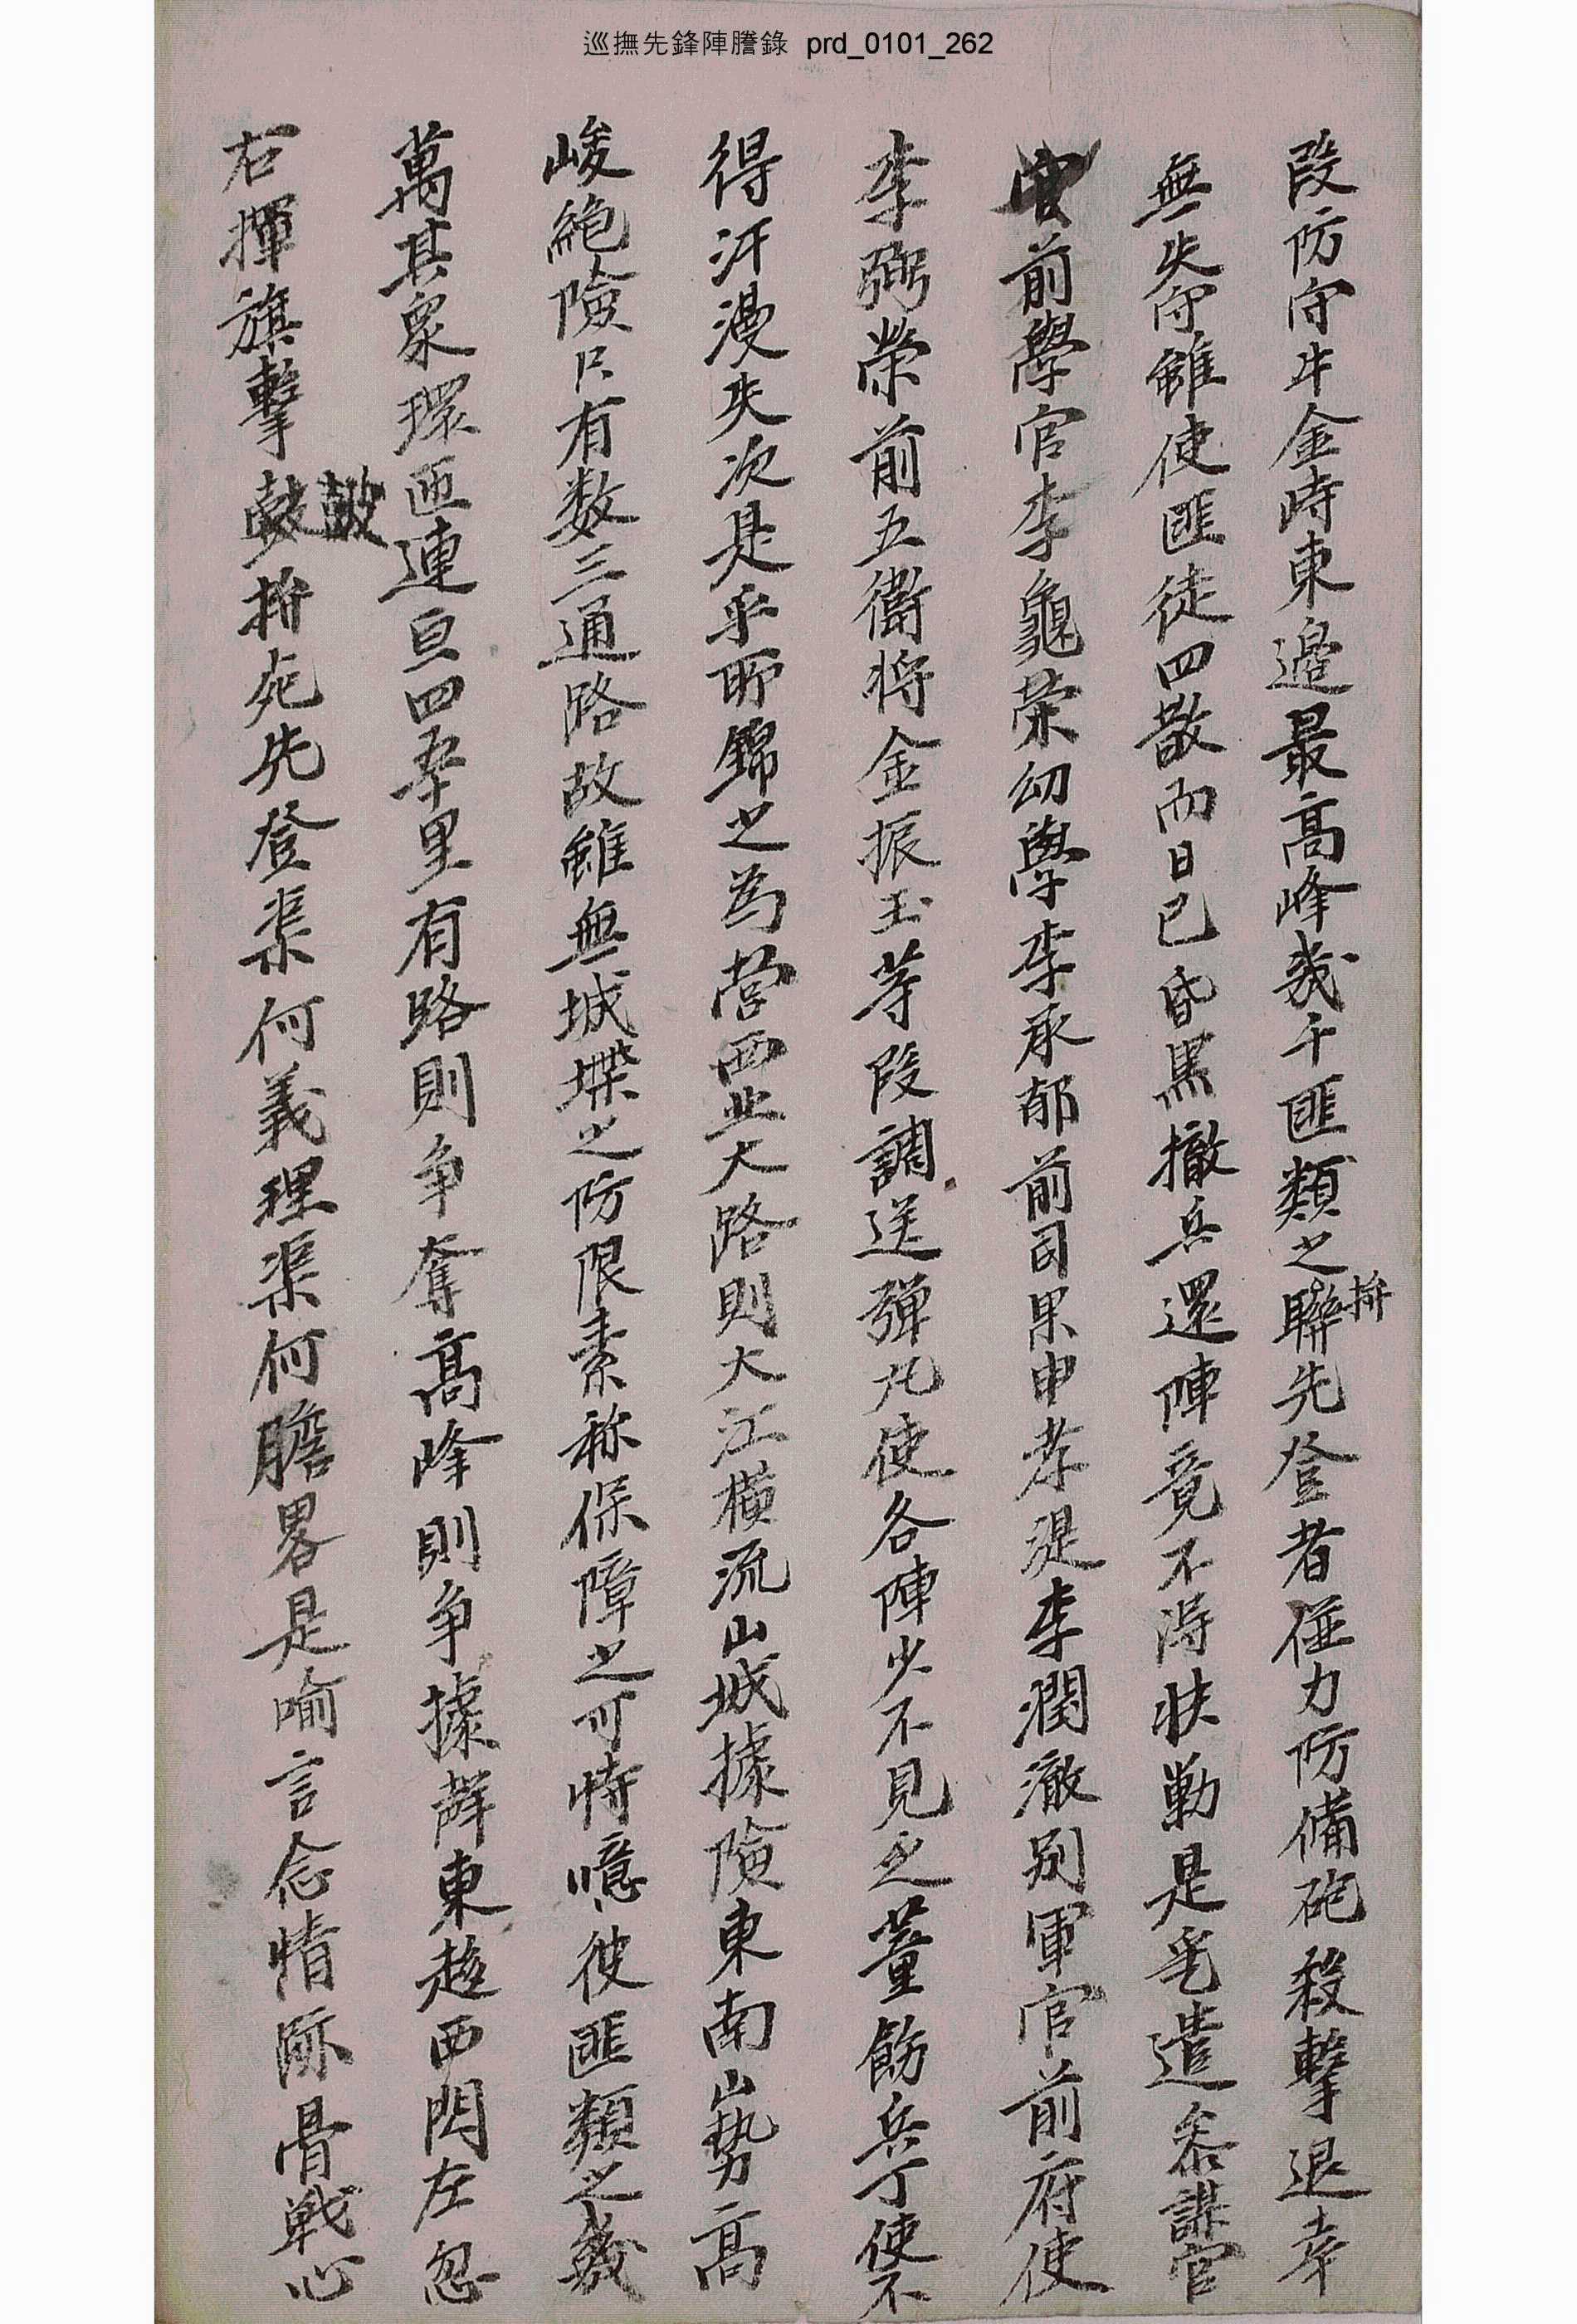 巡撫先鋒陣謄錄 prd_0101_262
段防守牛金時東邊最高峰幾千匪類之聯先登者碰力防備砲殺擊退幸
拚
無失守雖使匪徒四散而日已昏黑撤兵還陣竟不得快勦是乎遣參謀官
官前學官李龜榮幼學李承郁前司果申孝湜李潤澈別軍官前府使
李弼榮前五衛將金振玉等段調送彈丸使各陣少不見乏董飭兵丁使不
得汗漫失次是乎所錦之爲營西北大路則大江橫流山城據險東南山勢高
峻絶險只有数三通路故雖無城堞之防限素称保障之可恃噫彼匪類之幾
萬其衆環匝連亘四五十里有路則争奪高峰則争據群東趍西閃左忽
右揮旗擊鼓拚死先登渠何義理渠何膽畧是喩言念情跡骨戰心
鼓